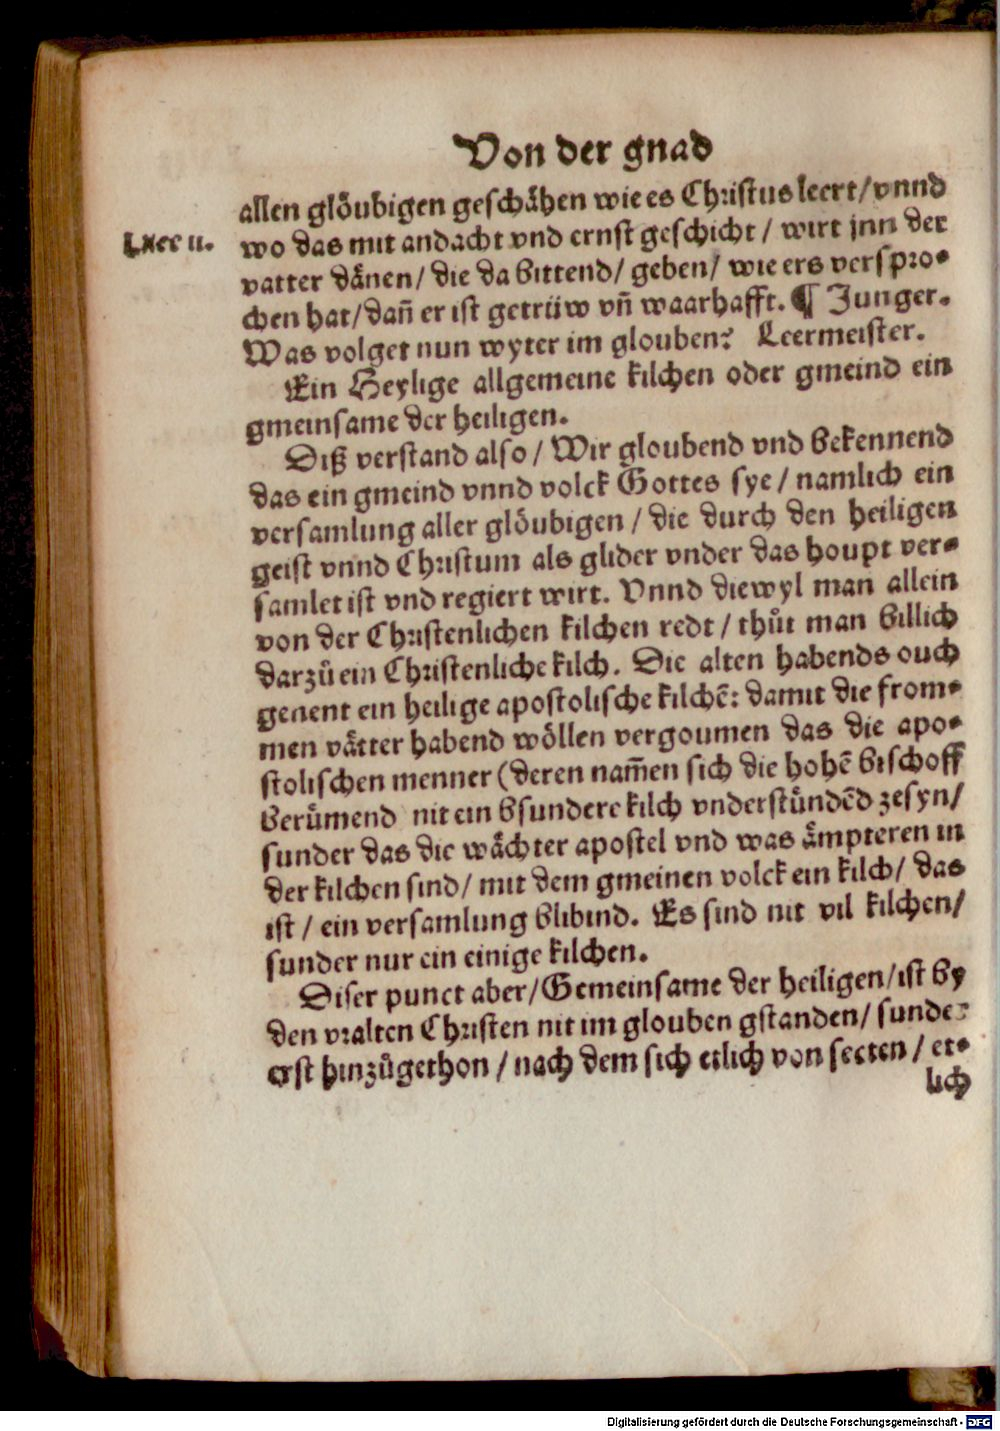 Von der gnad
allen glöubigen geschähen wie es Christus leert/ vnnd
Luce ii.
wo das mit andacht vnd ernst geschicht / wirt jnn der
vatter dänen/ die da bittend/ geben/ wie ers verspro⸗
chen hat/ dañ er ist getrüw vñ waarhafft. ¶ Junger.
Was volget nun wyter im glouben? Leermeister.
Ein Heylige allgemeine kilchen oder gmeind ein
gmeinsame der heiligen.
Diß verstand also / Wir gloubend vnd bekennend
das ein gmeind vnnd volck Gottes sye / namlich ein
versamlung aller glöubigen / die durch den heiligen
geist vnnd Christum als glider vnder das houpt ver⸗
samlet ist vnd regiert wirt. Vnnd diewyl man allein
von der Christenlichen kilchen redt / thůt man billich
darzů ein Christenliche kilch. Die alten habends ouch
genent ein heilige apostolische kilchē: damit die from⸗
men vätter habend wöllen vergoumen das die apo⸗
stolischen menner (deren nam̄en sich die hohē bischoff
berůmend nit ein bsundere kilch vnderstündēd zesyn/
sunder das die wächter apostel vnd was ämpteren in
der kilchen sind/ mit dem gmeinen volck ein kilch/ das
ist / ein versamlung blibind. Es sind nit vil kilchen/
sunder nur ein einige kilchen.
Diser punct aber/ Gemeinsame der heiligen/ ist by
den vralten Christen nit im glouben gstanden/ sunder
erst hinzůgethon / nach dem sich etlich von secten / et⸗
lich
Digitalisierung gefördert durch die Deutsche Forschungsgemeinschaft - DFG